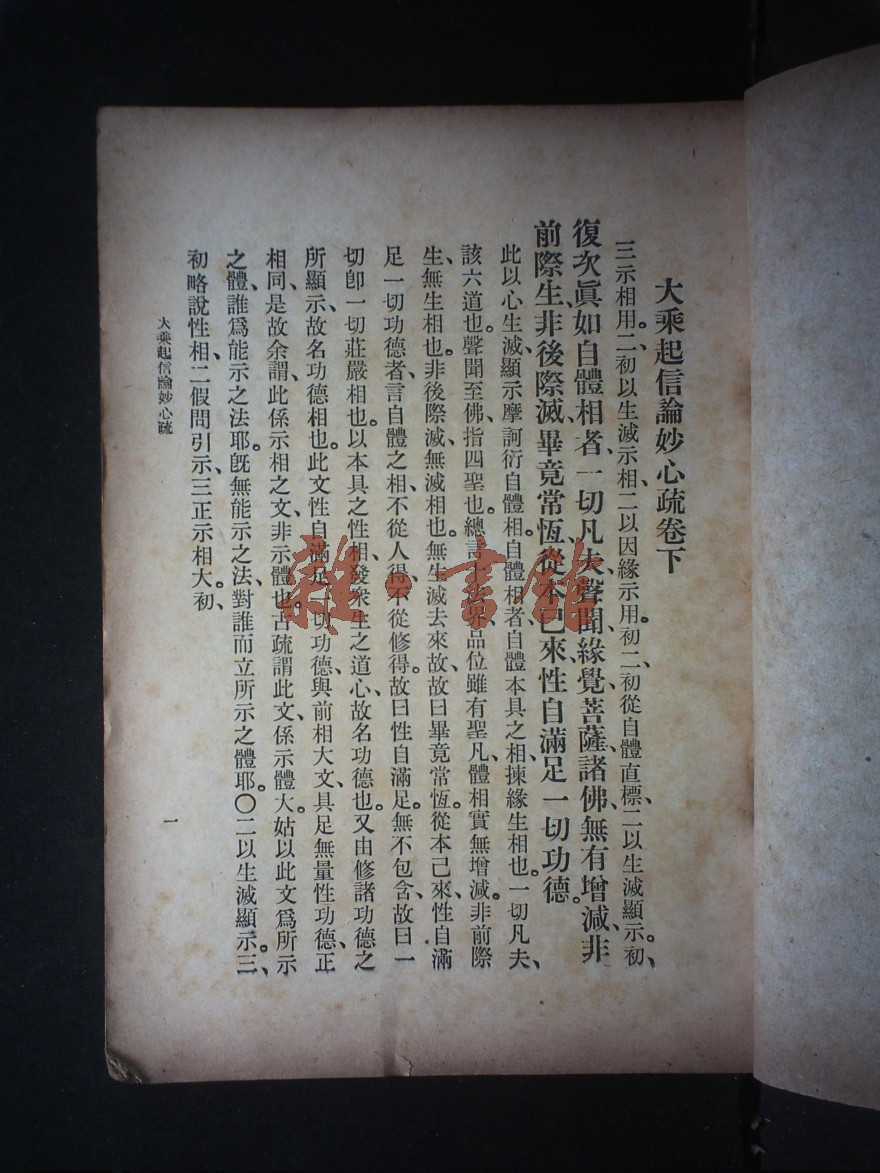 大乘起信論妙心疏卷下
三示相用。二、初以生滅示相、二以因緣示用。初二、初從自體直標、二以生滅顯示。初、
復次眞如自體相者、一切凡夫、聲聞、緣覺、菩薩、諸佛、無有增減、非
前際生、非後際滅、畢竟常恆、從本已來、性自滿足一切功德。
此以心生滅、顯示摩訶衍自體相。自體相者、自體本具之相、揀緣生相也。一切凡夫、
該六道也。聲聞至佛、指四聖也。總言十界品位雖有聖凡、體相實無增減。非前際
生、無生相也。非後際滅、無滅相也。無生滅去來故、故曰畢竟常恆。從本已來、性自滿
足一切功德者、言自體之相、不從人得、不從修得。故曰性自滿足。無不包含、故曰一
切卽一切莊嚴相也。以本具之性相、發衆生之道心、故名功德也。又由修諸功德之
所顯示、故名功德相也。此文性自滿足一切功德、與前相大文具足無量性功德、正
相同、是故余謂此係示相之文、非示體也。古疏謂此文、係示體大。姑以此文爲所示
之體、誰爲能示之法耶。旣無能示之法、對誰而立所示之體耶。〇二以生滅顯示。三、
初略說性相、二假問引示、三正示相大。初、
大乘起信論妙心疏
一
雜·書館